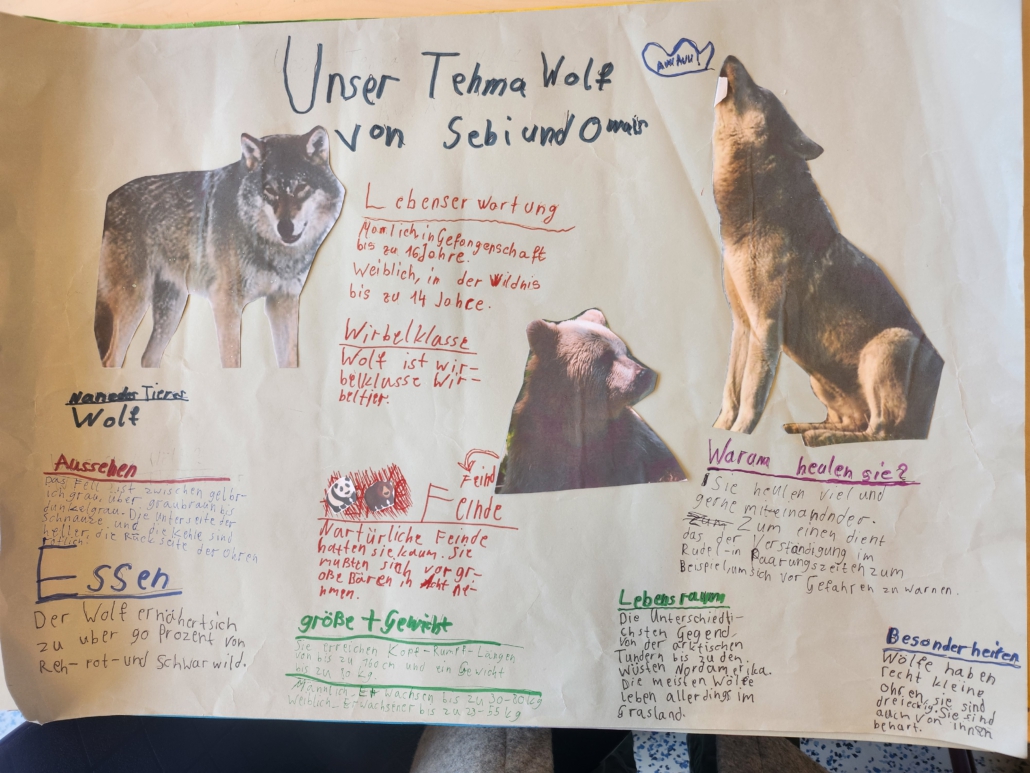 Unser Tehma Wolf
von Sebi und Omair
AUUAUU!
Lebenserwartung
Mänlich in Gefangenschaft
bis zu 16 Jahre.
Weiblich, in der Wildnis
bis zu 14 Jahre.
Wirbelklasse
Wolf ist wir-
belklasse Wir-
beltier.
Name des Tieres
Wolf
Aussehen
Das Fell ist zwischen gelb-
lichgrau, über graubraun bis
dunkelgrau. Die Unterseite der
Schnauze und die Kehle sind
heller, die Rückseite der Ohren
rötlich.
Essen
Der Wolf ernährt sich
zu uber 90 Prozent von
Reh- rot- und Schwarwild.
Feind
Feinde
Nartürliche Feinde
hatten sie kaum. Sie
mußten sich vor gr-
oße Bären in Acht ne-
hmen.
größe + Gewicht
Sie erreichen Kopf-Rumpf-Längen
von bis zu 160cm und ein Gewicht
bis zu 80 kg.
Männlich-Er Wachsen bis zu 30-80kg
Weiblich-Er Wachsener bis zu 23-55 kg
Warum heulen sie?
Sie heulen viel und
gerne miteinandnder.
Zum Zum einen dient
das der Verständigung im
Rudel-in Paarungszeiten zum
Beispiel, um sich vor Gefahren zu warnen.
Lebensraum
Die Unterschiedli-
chsten Gegend,
von der arktischen
Tundern bis zu den
Wüsten Nordamerika.
Die meisten Wölfe
leben allerdings im
Grasland.
Besonderheiten
Wölfe haben
recht kleine
Ohren, sie sind
dreieckig. Sie sind
auch von innen
behart.